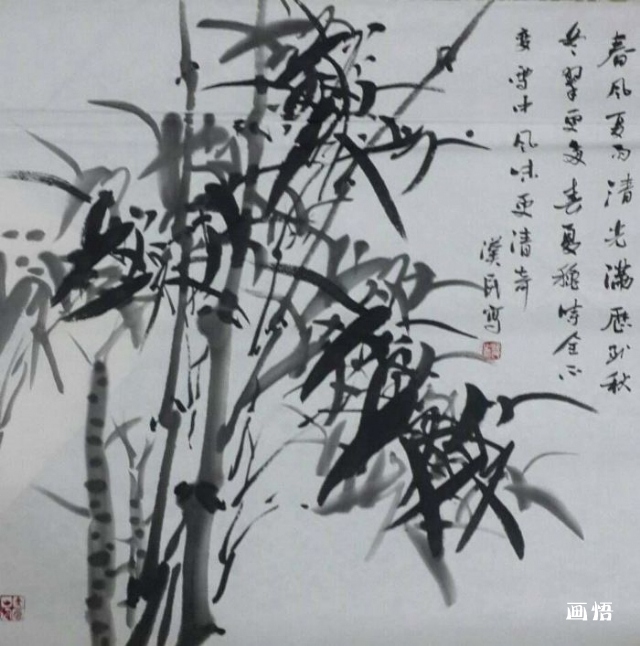 春风夏雨清光满历到秋
冬翠更多春夏时全不
变雪中风味更清奇
汉民写
画悟